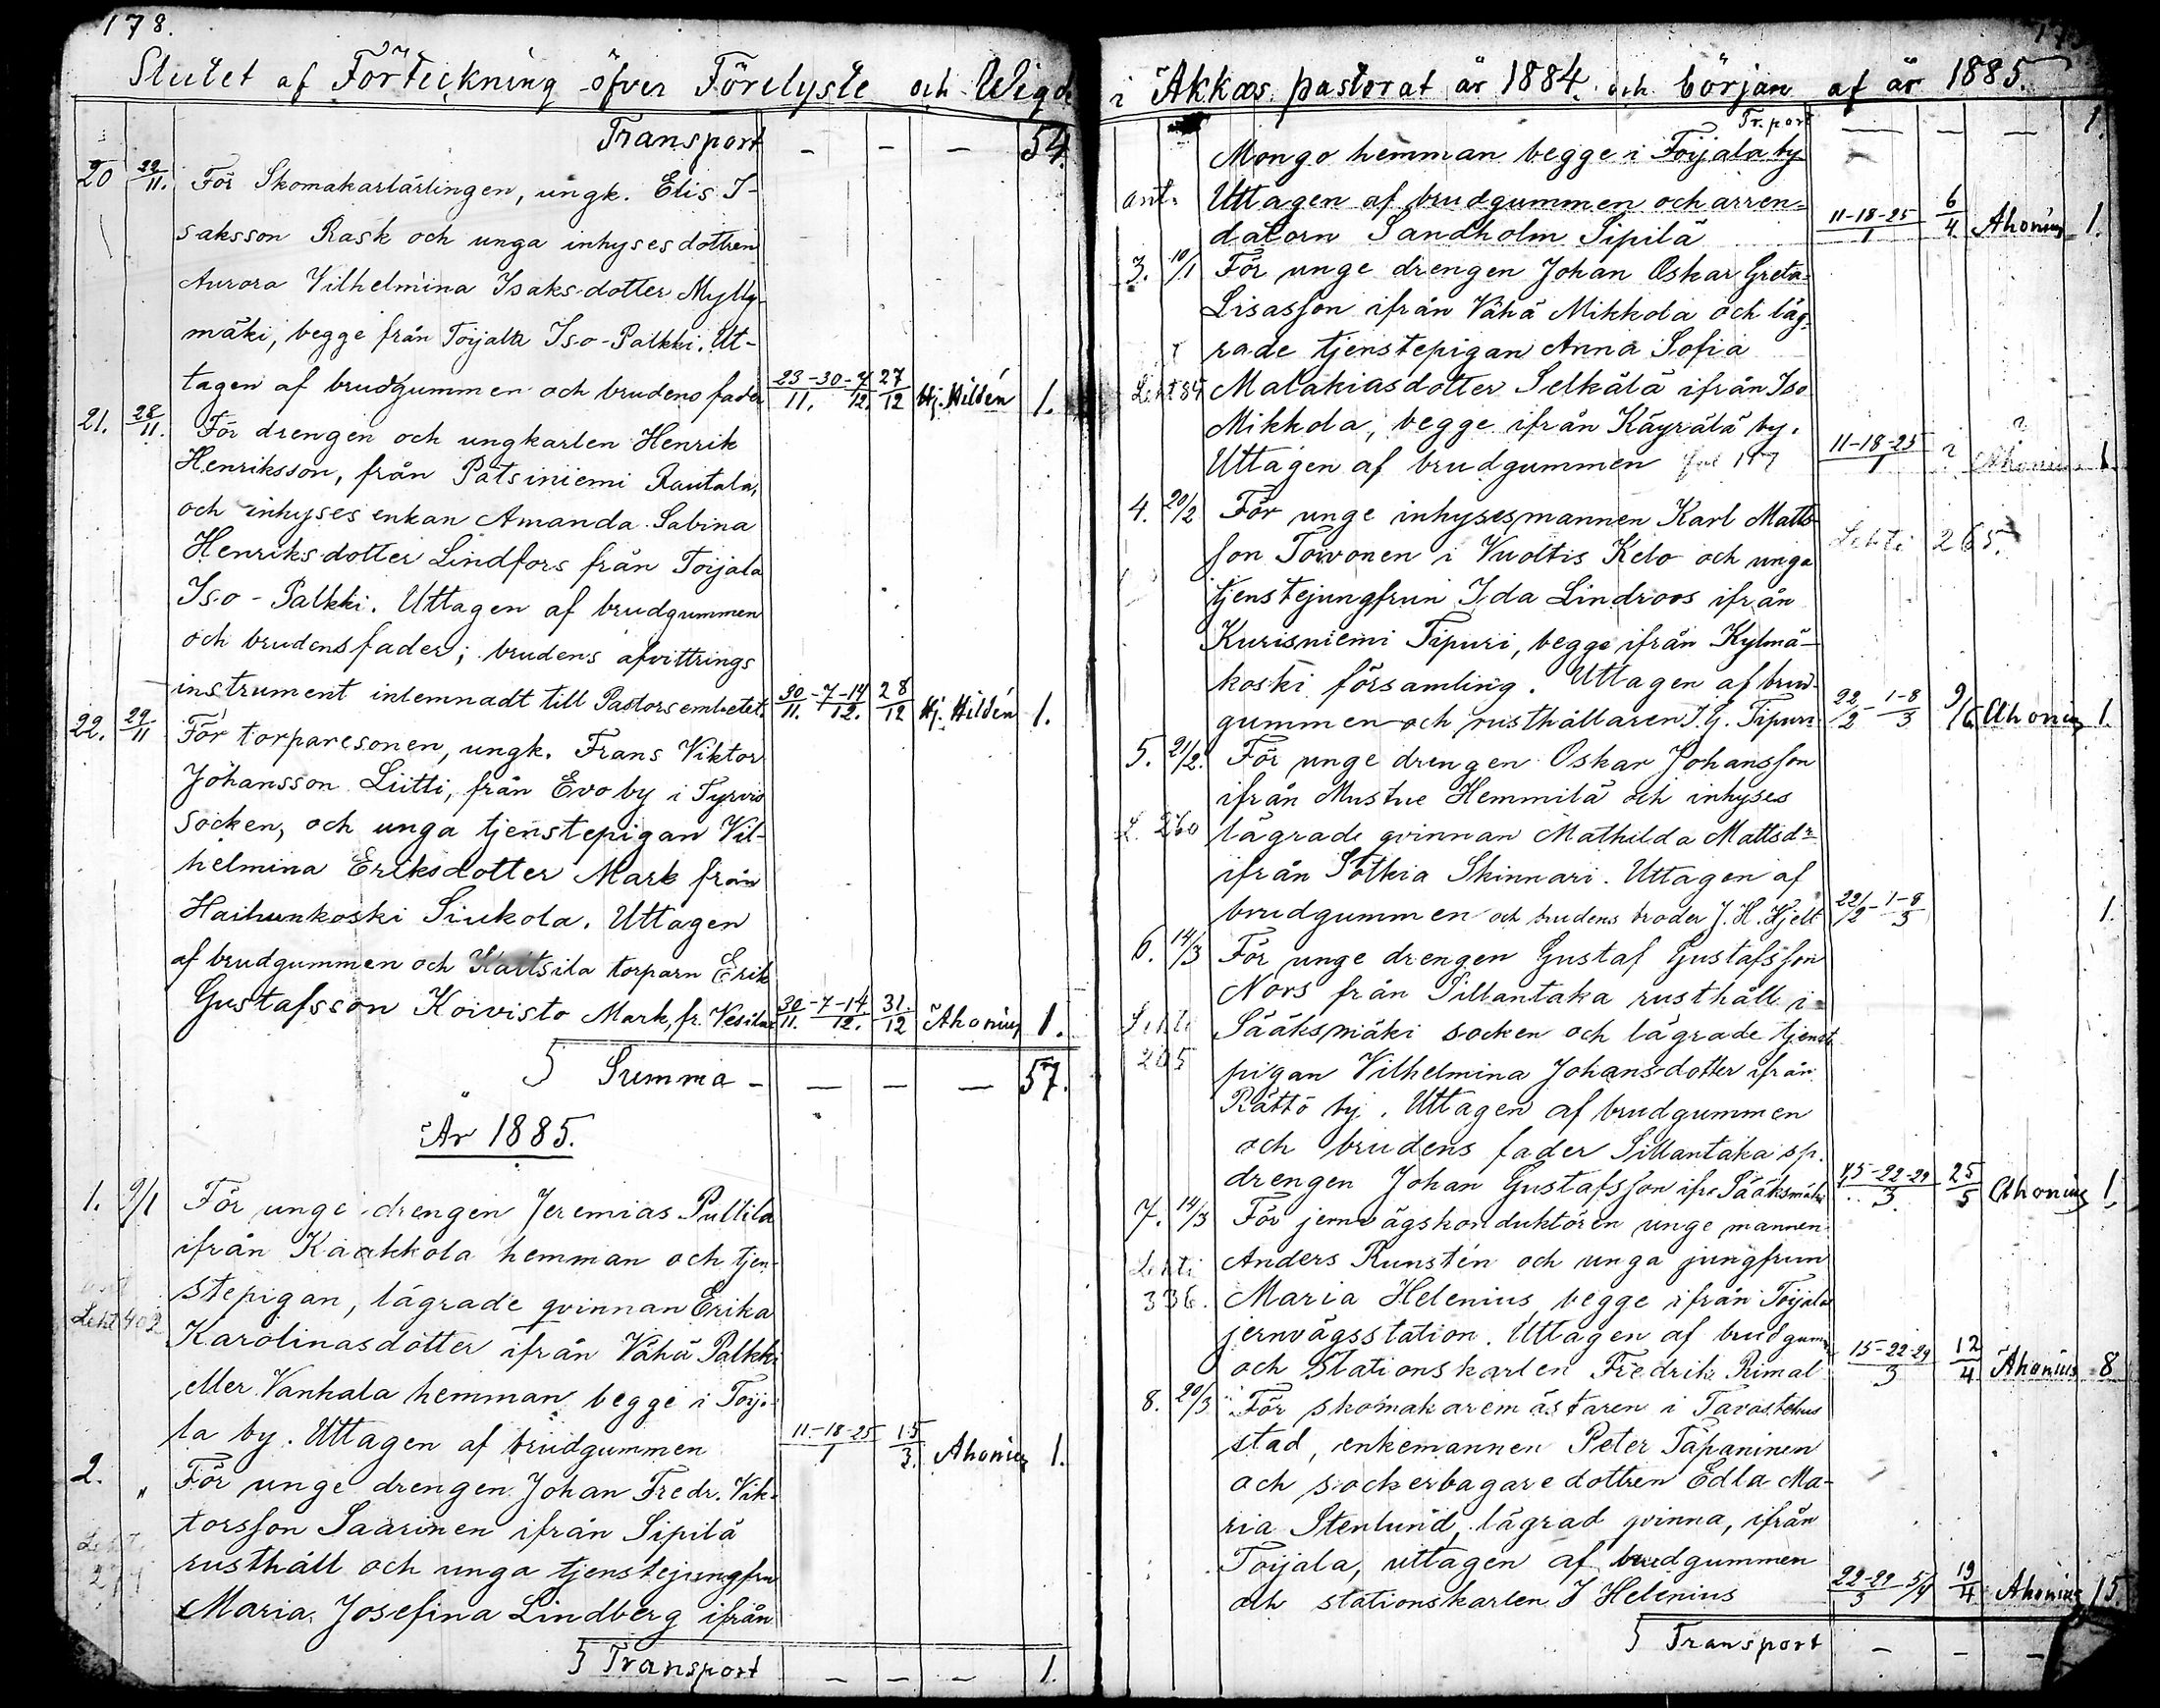 178.
Slutet af Förteckning öfver Förelyste och Wigde
Transport — — — 54.
20 29/11. För Skomakarlärlingen, ungk. Elis I-
saksson Rask och unga inhysesdottren
Aurora Vilhelmina Isaksdotter Mylly-
mäki, begge från Toijala Iso-Palkki. Ut-
tagen af brudgummen och brudens fader 23-30/11.-7/12. 27/12 Hj. Hildén 1.
21. 28/11. För drengen och ungkarlen Henrik
Henriksson, från Patsiniemi Rautala,
och inhyses enkan Amanda Sabina
Henriksdotter Lindfors från Toijala
Iso-Palkki. Uttagen af brudgummen
och brudens fader; brudens afvittrings
instrument inlemnadt till Pastorsembetet. 30/11.-7-14/12. 28/12 Hj. Hildén 1.
22. 29/11 För torparesonen, ungk. Frans Viktor
Johansson Liitti, från Evo by i Tyrvis
socken, och unga tjenstepigan Vil-
helmina Eriksdotter Mark från
Haihunkoski Siukola. Uttagen
af brudgummen och Kaitsila torparn Erik
Gustafsson Koivisto Mark, fr. Vesilax 30/11.-7-14/12. 31./12 Ahonius 1.
Summa — — — — 57.
År 1885.
1. 9/1 För unge drengen Jeremias Pullila
ifrån Kaakkola hemman och tjen-
stepigan, lägrade qvinnan Erika
Leht 402
Karolinasdotter ifrån Vähä Palkki
eller Vanhala hemman begge i Toija-
la by. Uttagen af brudgummen 11-18-25/1 15/3. Ahonius 1.
2. " För unge drengen Johan Fredr. Vik-
torsson Saarinen ifrån Sipilä
Lehti
rusthåll och unga tjenstejungfrun
Maria Josefina Lindberg ifrån
Transport — — — 1.
i Akkas pastorat år 1884. och början af år 1885.
Tr.port — — — 1.
Mongo hemman begge i Toijala by
ant. Uttagen af brudgummen och arren-
datorn Sandholm Sipilä 11-18-25/1 6/4. Ahonius 1.
3. 10/1 För unge drengen Johan Oskar Greta-
Lisasson ifrån Vähä Mikkola och läg-
rade tjenstepigan Anna Sofia
Leht 84 Malakiasdotter Selkälä ifrån Iso
Mikkola, begge ifrån Käyrälä by.
Uttagen af brudgummen 11-18-25/1 ? Ahonius 1.
4. 20/2 För unge inhysesmannen Karl Matts-
son Toivonen i Vuoltis Kelo och unga Lehti 265.
tjenstejungfrun Ida Lindroos ifrån
Kurisniemi Tipuri, begge ifrån Kylmä-
koski församling. Uttagen af brud-
gummen och rusthållaren J.G. Tipuri 22/2-1-8/3 9/6 Ahonius 1.
5. 21/2. För unge drengen Oskar Johansson
ifrån Mustue Hemmilä och inhyses
L. 260 lägrade qvinnan Mathilda Mattsdr
ifrån Sotkia Skinnari. Uttagen af
brudgummen och brudens broder J. H. Hjelt 22/2-1-8/3 1.
6. 14/3 För unge drengen Gustaf Gustafsson
Nors från Sillantaka rusthåll i
Lehti Sääksmäki socken och lägrade tjenste
265 pigan Vilhelmina Johansdotter ifrån
Rättö by. Uttagen af brudgummen
och brudens fader Sillantaka sp.
drengen Johan Gustafsson ifr. Sääksmäki 15-22-29/3. 25/5 Ahonius 1.
7. 14/3 För jernvägskonduktören unge mannen
Lehti Anders Runstén och unga jungfrun
336. Maria Helenius begge ifrån Toijala
jernvägsstation. Uttagen af brudgumn
och Stationskarlen Fredrik Rimal 15-22-29/3 12/4 Ahonius 8
8. 20/3 För skomakaremästaren i Tavastehus
stad, enkemannen Peter Tapaninen
och sockerbagaredottren Edla Ma-
ria Stenlund, lägrad qvinna, ifrån
Toijala, uttagen af brudgummen
och stationskarlen J Helenius 22-29/3-5/4 19/4 Ahonius 15.
Transport — — —